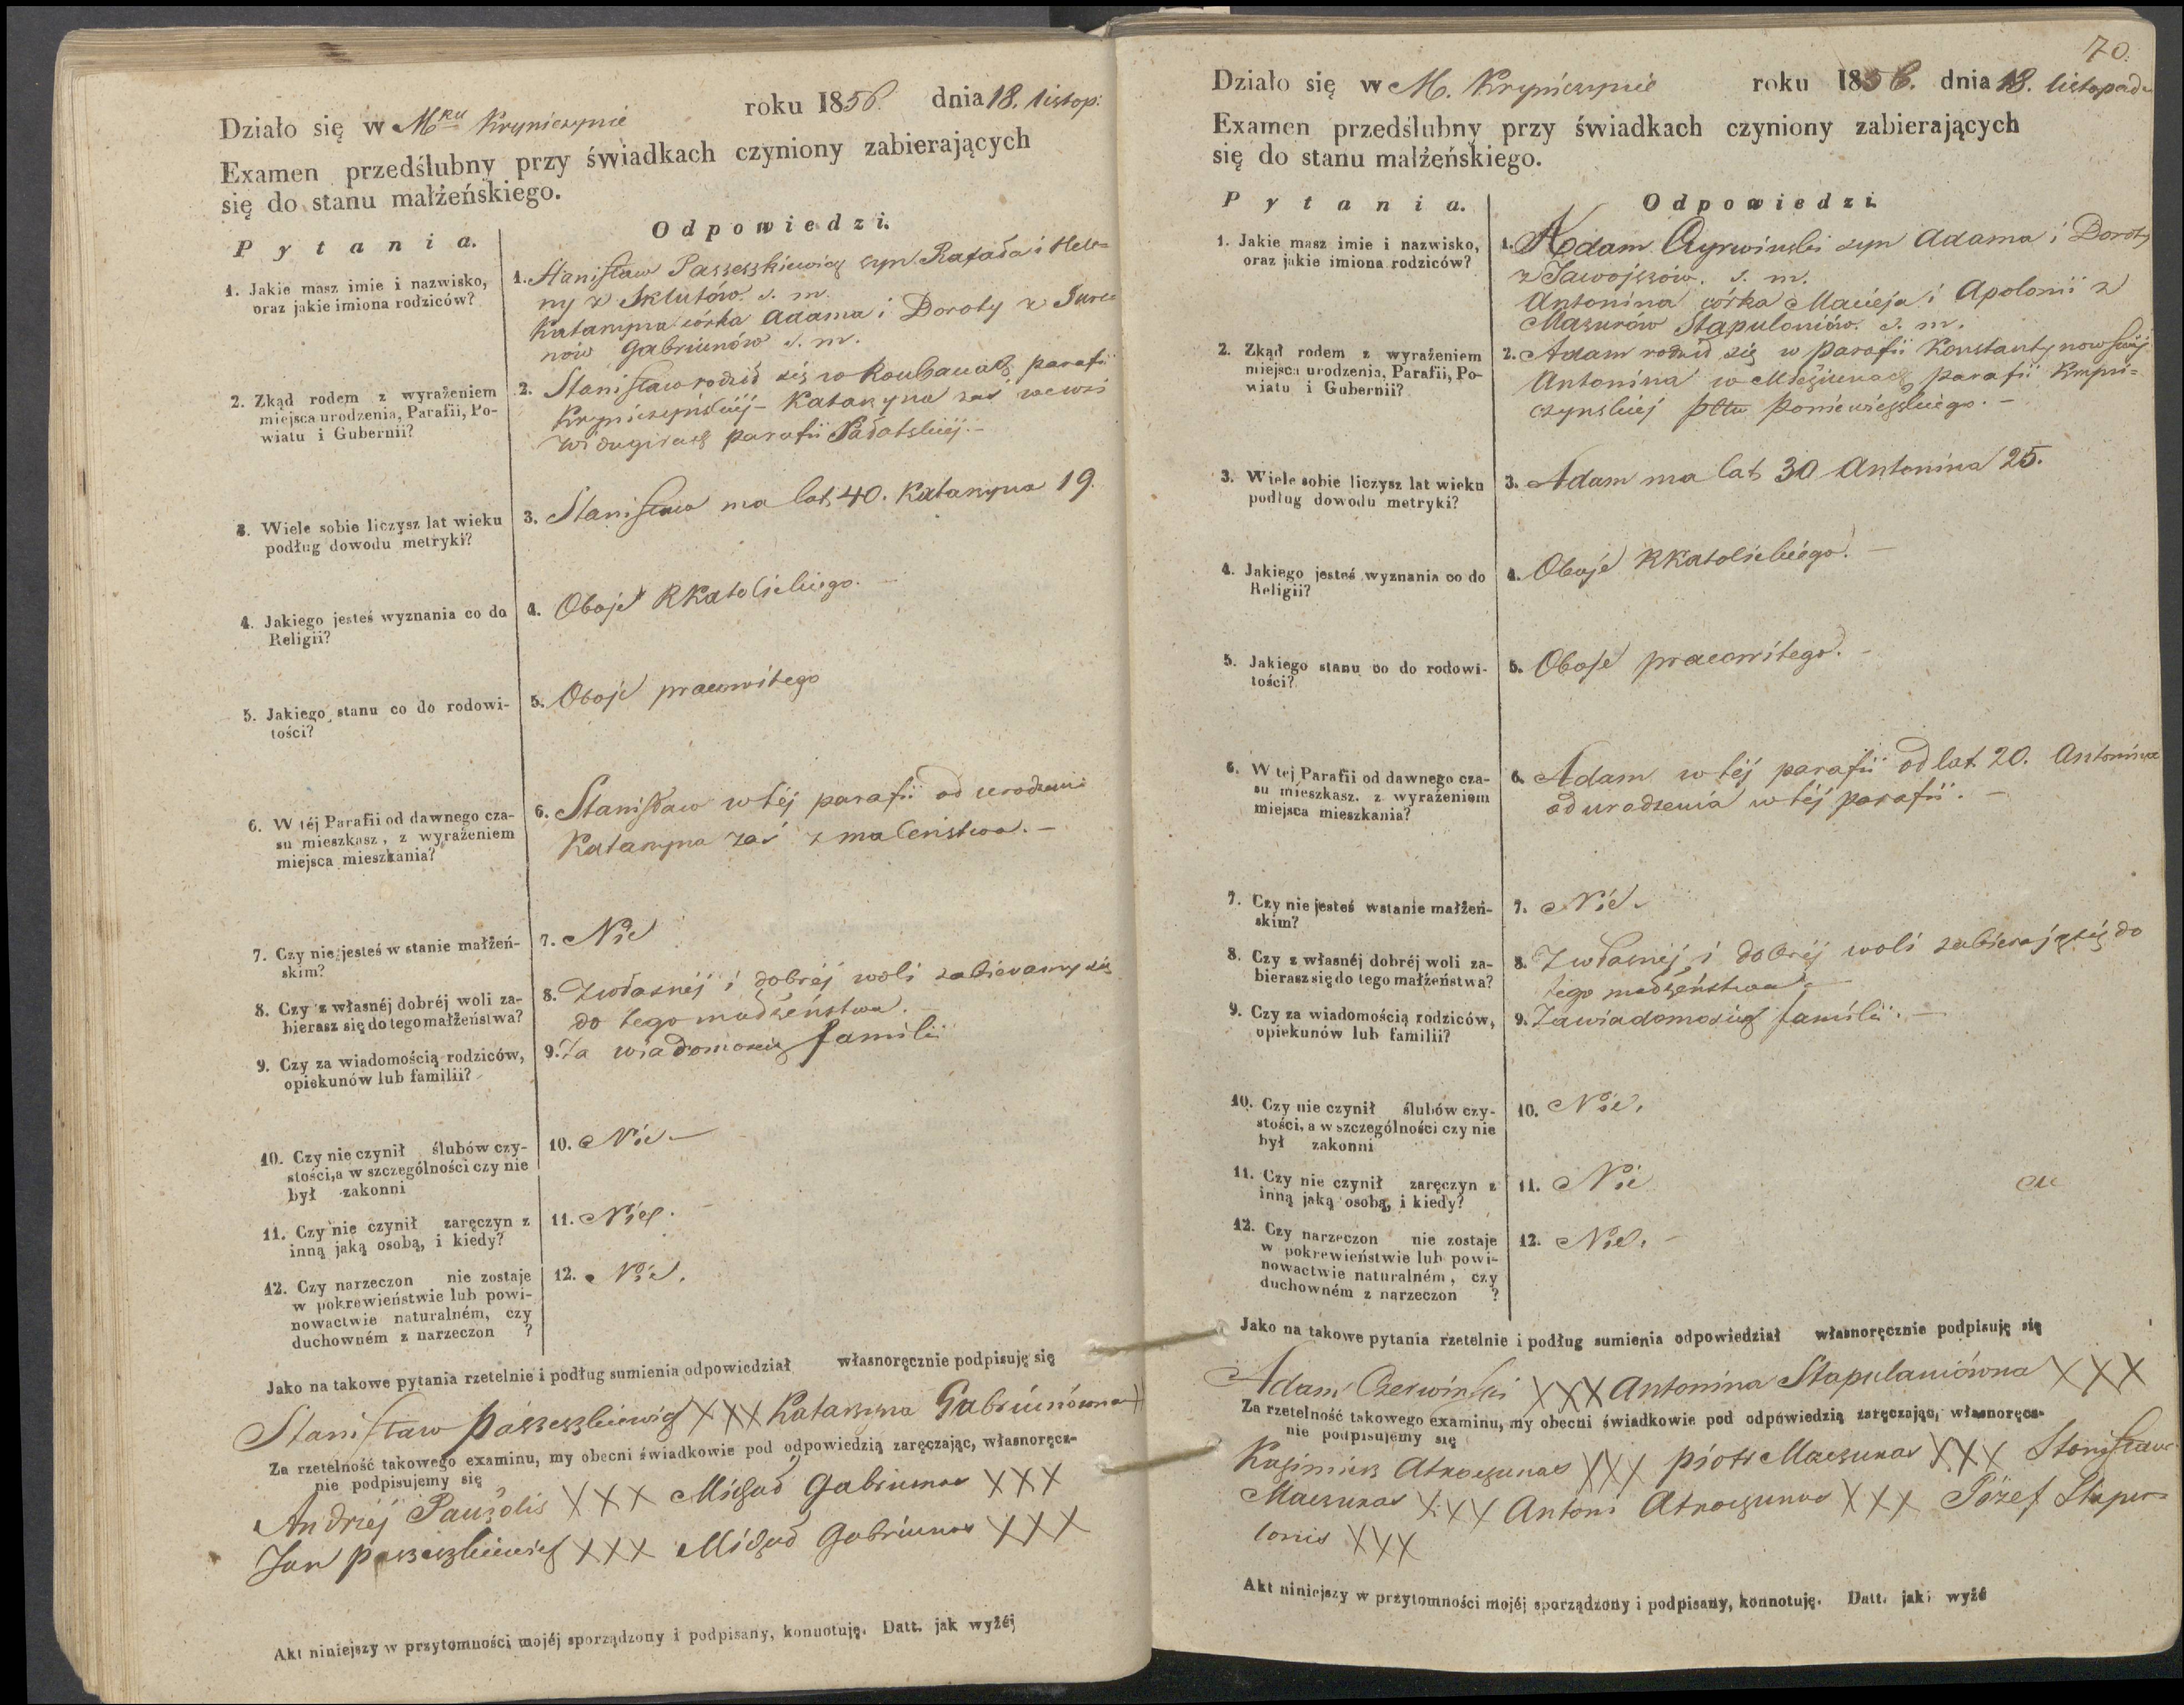 Działo się w Mku Kryniczynie roku 1856. dnia 18. listop:
Examen przedślubny przy świadkach czyniony zabierających
się do stanu małżeńskiego.
Pytania.
Odpowiedzi.
1. Jakie masz imie i nazwisko,
oraz jakie imiona rodziców?
1. Stanisław Paszeszkiewicz syn Rafała i Hele=
ny z Sklutów. s. m.
Katarzyna córka Adama i Doroty z
nów Gabriunów s. m.
2. Zkąd rodem z wyrażeniem
miejsca urodzenia, Parafii, Po-
wiatu i Gubernii?
2. Stanisław rodził się w parafii
Kryniczyńskiéj - Katarzyna zaś we wsi
parafii
3. Wiele sobie liczysz lat wieku
podług dowodu metryki?
3. Stanisław ma lat 40. Katarzyna 19.
4. Jakiego jesteś wyznania co do
Religii?
4. Oboje RKatolickiego. -
5. Jakiego stanu co do rodowi-
tości?
5. Oboje pracowitego
6. W téj Parafii od dawnego cza-
su mieszkasz, z wyrażeniem
miejsca mieszkania?
6. Stanisław w téj parafii od urodzenia
Katarzyna zaś z maleństwa. -
7. Czy nie jesteś w stanie małżeń-
skim?
7. Nie
8. Czy z własnéj dobréj woli za-
bierasz się do tego małżeństwa?
8. Z własnéj i dobréj woli zabieramy się
do tego małżeństwa. -
9. Czy za wiadomością rodziców,
opiekunów lub familii?
9. Za wiadomością familii
10. Czy nie czynił ślubów czy-
stości, a w szczególności czy nie
był zakonni
10. Nie -
11. Czy nie czynił zaręczyn z
inną jaką osobą, i kiedy?
11. Nie. -
12. Czy narzeczon nie zostaje
w pokrewieństwie lub powi-
nowactwie naturalném, czy
duchowném z narzeczon ?
12. Nie.
Jako na takowe pytania rzetelnie i podług sumienia odpowiedział własnoręcznie podpisuję się
Stanisław Paszeszkiewicz XXX Katarzyna Gabriunówna
Za rzetelność takowego examinu, my obecni świadkowie pod odpowiedzią zaręczając, własnoręcz-
nie podpisujemy się
Andrzéj Pauzolis XXX Michał Gabriunas XXX
Jan Paszeszkiewicz XXX Michał Gabriunas XXX
Akt niniejszy w przytomności mojéj sporządzony i podpisany, konnotuję. Datt. jak wyżéj
70.
Działo się w M. Kryniczynie roku 1856. dnia 18. listopada
Examen przedślubny przy świadkach czyniony zabierających
się do stanu małżeńskiego.
Pytania.
Odpowiedzi.
1. Jakie masz imie i nazwisko,
oraz jakie imiona rodziców?
1. Adam syn Adama i Doroty
z s. m.
Antonina córka Macieja i Apolonii z
Mazurów Stapuloniów. s. m.
2. Zkąd rodem z wyrażeniem
miejsca urodzenia, Parafii, Po-
wiatu i Gubernii?
2. Adam rodził się w Parafii Konstantynowskiéj
Antonina w parafii Kryni=
czynskiej pttu Poniewiezskiego. -
3. Wiele sobie liczysz lat wieku
podług dowodu metryki?
3. Adam ma lat 30 Antonina 25.
4. Jakiego jesteś wyznania co do
Religii?
4. Oboje RKatolickiego. -
5. Jakiego stanu co do rodowi-
tości?
5. Oboje pracowitego. -
6. W tej Parafii od dawnego cza-
su mieszkasz. z wyrażeniem
miejsca mieszkania?
6. Adam w téj parafii od lat 20. Antonina
od urodzenia w téj parafii. -
7. Czy nie jesteś w stanie małżeń-
skim?
7. Nie.
8. Czy z własnéj dobréj woli za-
bierasz się do tego małżeństwa?
8. Z własnéj i dobréj woli zabierają się do
tego małżeństwa -
9. Czy za wiadomością rodziców,
opiekunów lub familii?
9. Za wiadomością familii. -
10. Czy nie czynił ślubów czy-
stości, a w szczególności czy nie
był zakonni
10. Nie.
11. Czy nie czynił zaręczyn z
inną jaką osobą, i kiedy?
11. Nie
12. Czy narzeczon nie zostaje
w pokrewieństwie lub powi-
nowactwie naturalném, czy
duchowném z narzeczon ?
12. Nie. -
Jako na takowe pytania rzetelnie i podług sumienia odpowiedział własnoręcznie podpisuję się
Adam Czerwiński XXX Antonina Stapulaniówna XXX
Za rzetelność takowego examinu, my obecni świadkowie pod odpowiedzią zaręczając, własnoręcz-
nie podpisujemy się
Kazimierz XXX Piotr Maczunas XXX Stanisław
Maczunas XXX Antoni XXX Józef Stapu=
lonis XXX
Akt niniejszy w przytomności mojéj sporządzony i podpisany, konnotuję. Datt. jak wyżé